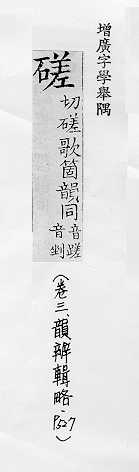 增廣字學舉隅
磋
切磋歌箇韻同
音蹉
音剉
(卷三、韻辨輯略、